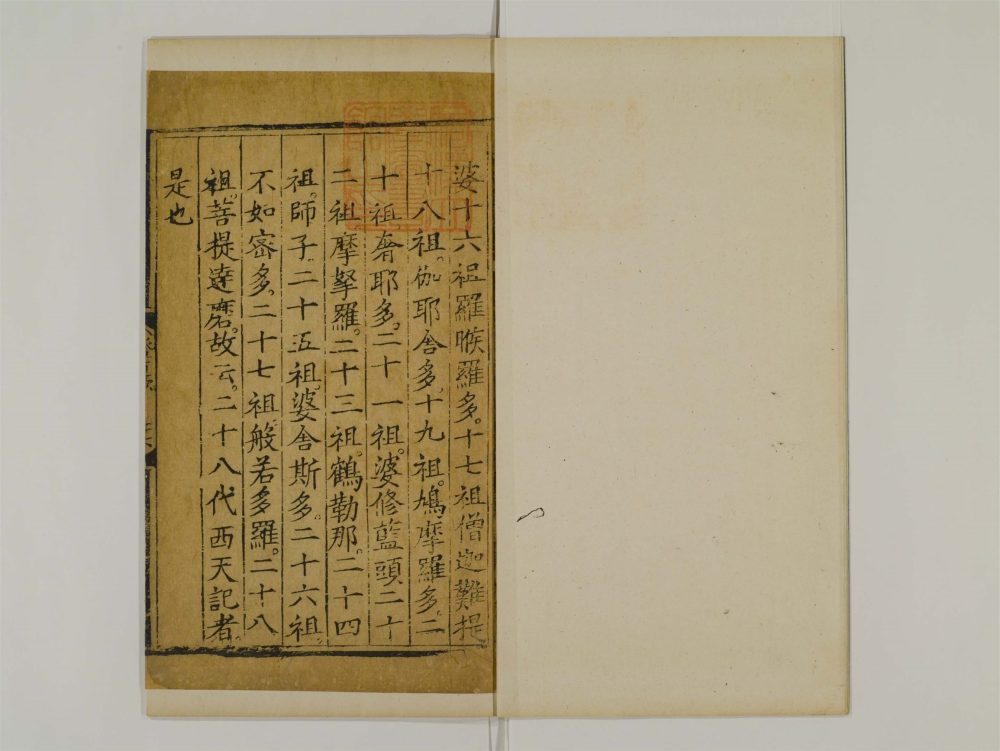 婆十六祖羅睺羅多。十七祖僧迦難提
十八祖。伽耶舍多。十九祖。鳩摩羅多。二
十祖奢耶多。二十一祖。婆修藍頭二十
二祖摩拏羅。二十三祖鶴勒那。二十四
祖。師子。二十五祖。婆舍斯多。二十六祖。
不如密多。二十七祖般若多羅。二十八
祖。菩提達磨。故云。二十八代西天記者。
是也